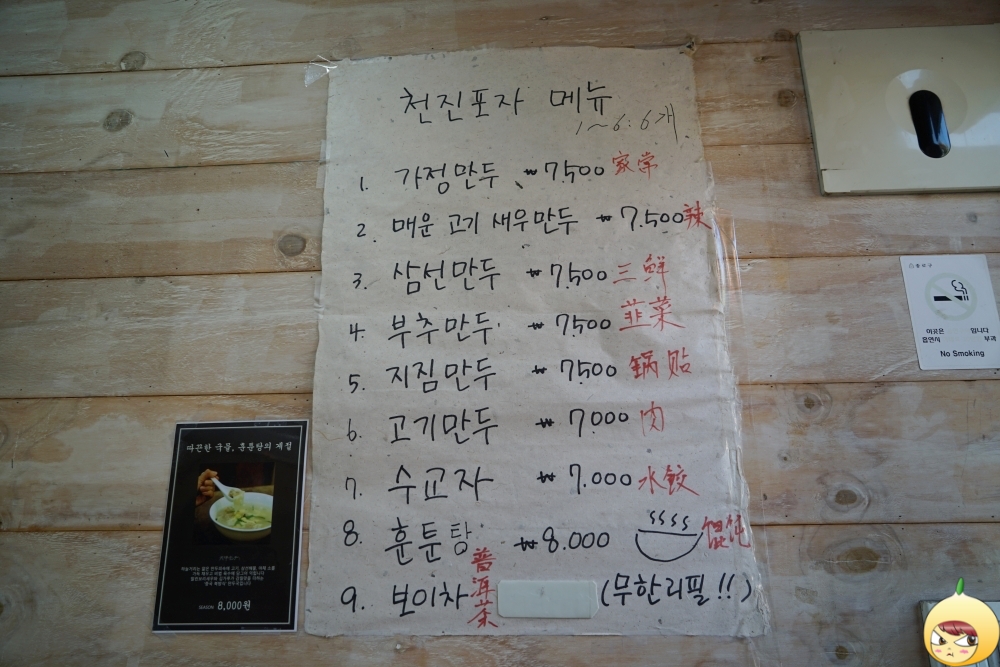 천진포자 메뉴
1~6: 6개
1. 가정만두 ₩7,500 家常
2. 매운 고기 새우만두 ₩7.500 辣
3. 삼선만두 ₩7,500 三鲜
4. 부추만두 ₩7,500 韭菜
5. 지짐만두 ₩7,500 锅贴
6. 고기만두 ₩7.000 肉
7. 수교자 ₩7.000 水餃
8. 훈툰탕 ₩8.000 馄饨
9. 보이차 普洱茶 (무한리필!!)
따끈한 국물, 훈툰탕의 계절
8,000원
이곳은 입니다
흡연시 부과
No Smoking